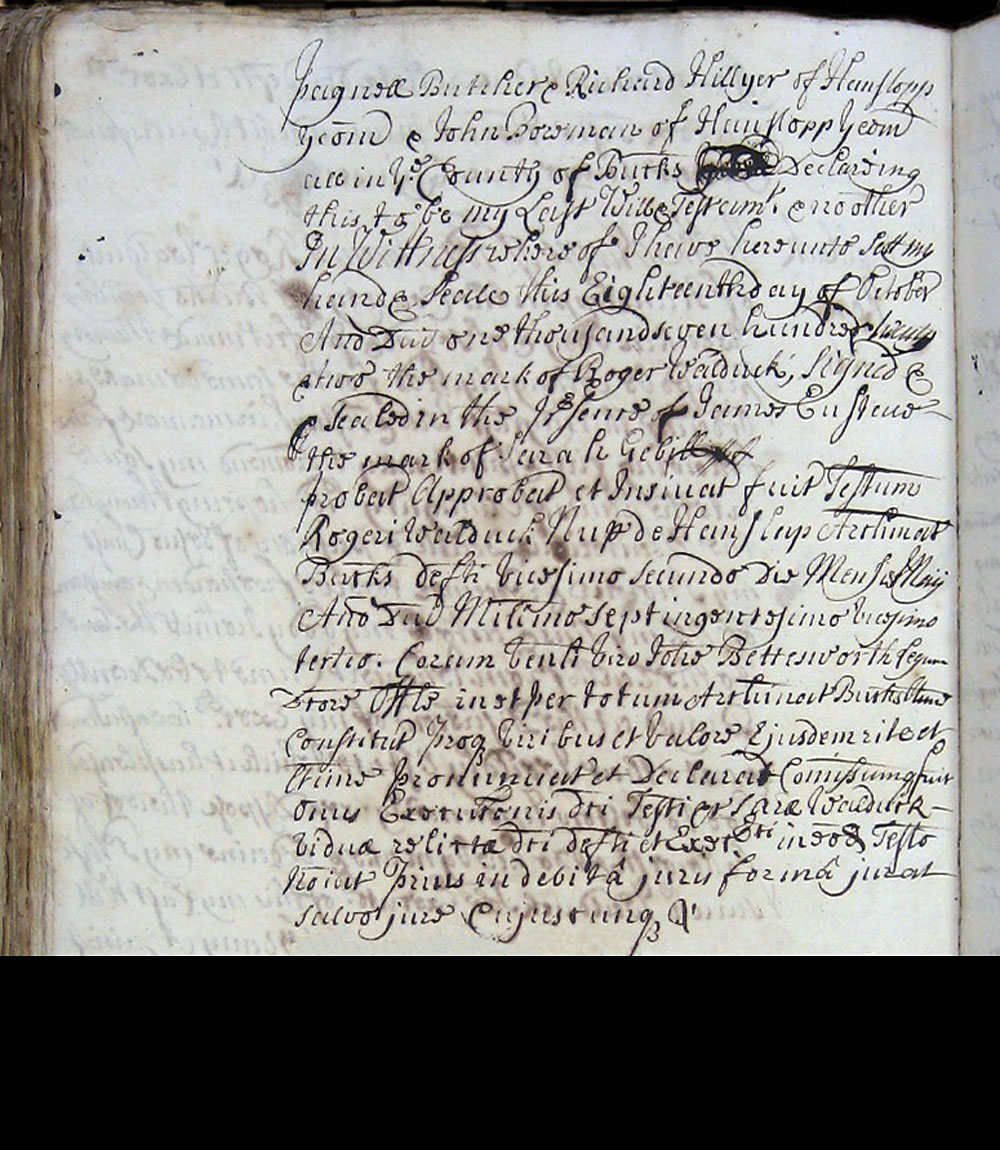 pagnell Butcher & Richard Hillyer of Hanslopp
yeom̄ & John Bowman of Hanslopp yeom̄
all in yͤ County of Bucks Declareing
this to be my Last Will & Testamͭ. & no other
In Wittness whereof I have hereunto sett my
hand & Seale this Eighteenth day of October
Año Dnī one thousand seven hundred
& two the mark of Roger Walduck, Signed &
& Sealed in the Prsence of James Eustace
the mark of Sarah
probat Approbat et Insinuat fuit Testum
Rogeri Walduck Nup de Hanslap Archinat
Bucks defti vicesimo secundo die Mensis Maij
Año Dnī Milimo septingentesimo vicesimo
tertio. Coram venli viro Johe Bettesworth legum
Dtore Offle in et per totum Archinat Bucks ltime
Constitut Proq viribus et valore Ejusdem rite et
ltime pronunciat et Declarat Comissumq fuit
onus Executionis dti Testi Saræ Walduck
viduæ relictæ dti defti et Exec Dti in eod Testo
noiat Prius in debitâ juris formâ jurat
salvo jure Cujuscunq